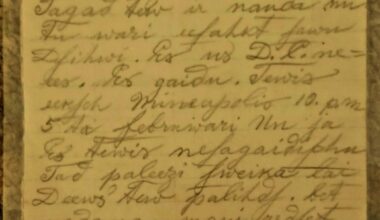 Tagad tew ir nauda un
tu wari isfahkt sawu
Dsihwi. Es us D. P. ne-
ees. Es gaidu. Tewis
eeksch Minneapolis 10. pm
5 ta februwari Un ja
Es tewis nesagaidischu
Tad paleezi sweika lai
Deews tew palihds. bet